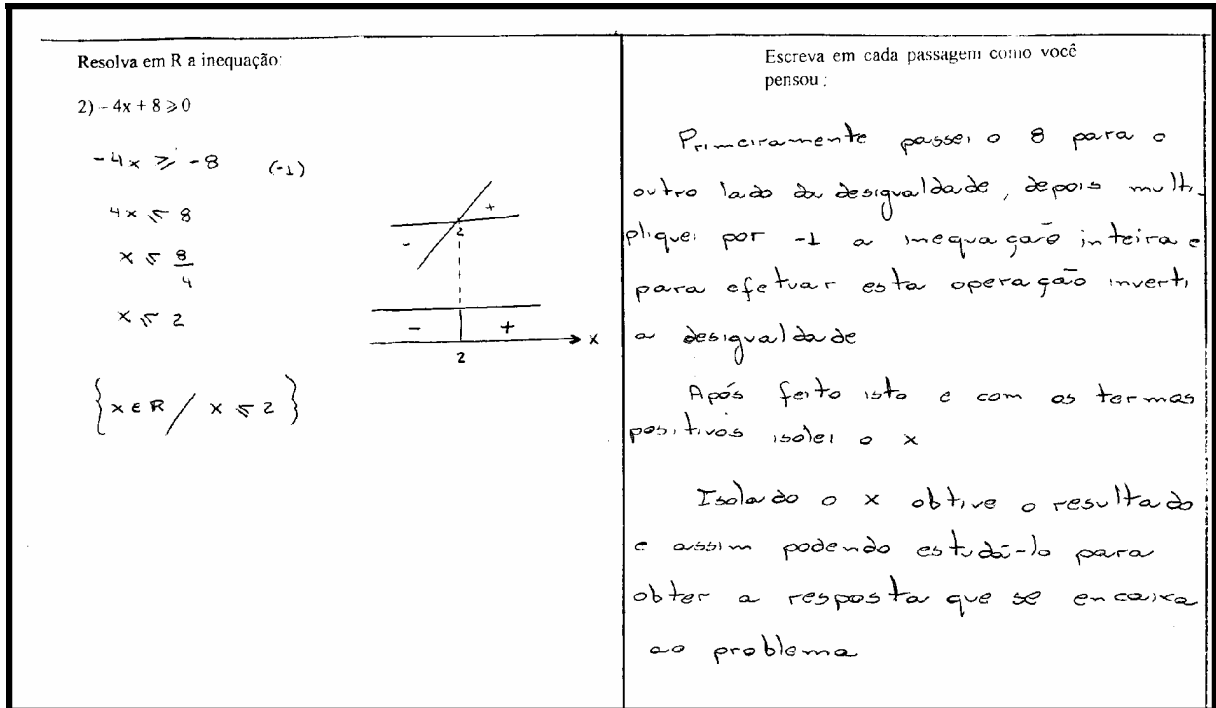 Resolva em R a inequação:
2) – 4x + 8 ⩾ 0
-4x ⩾ -8 (-1)
4x ⩽ 8
x ⩽ 8/4
x ⩽ 2
{x ∈ R / x ⩽ 2}
+
-
2
- +
x
2
Escreva em cada passagem como você
pensou :
Primeiramente passei o 8 para o
outro lado da desigualdade, depois multi-
pliquei por -1 a inequação inteira e
para efetuar esta operação inverti
a desigualdade
Após feito isto e com os termos
positivos isolei o x
Isolado o x obtive o resultado
e assim podendo estudá-lo para
obter a resposta que se encaixa
ao problema